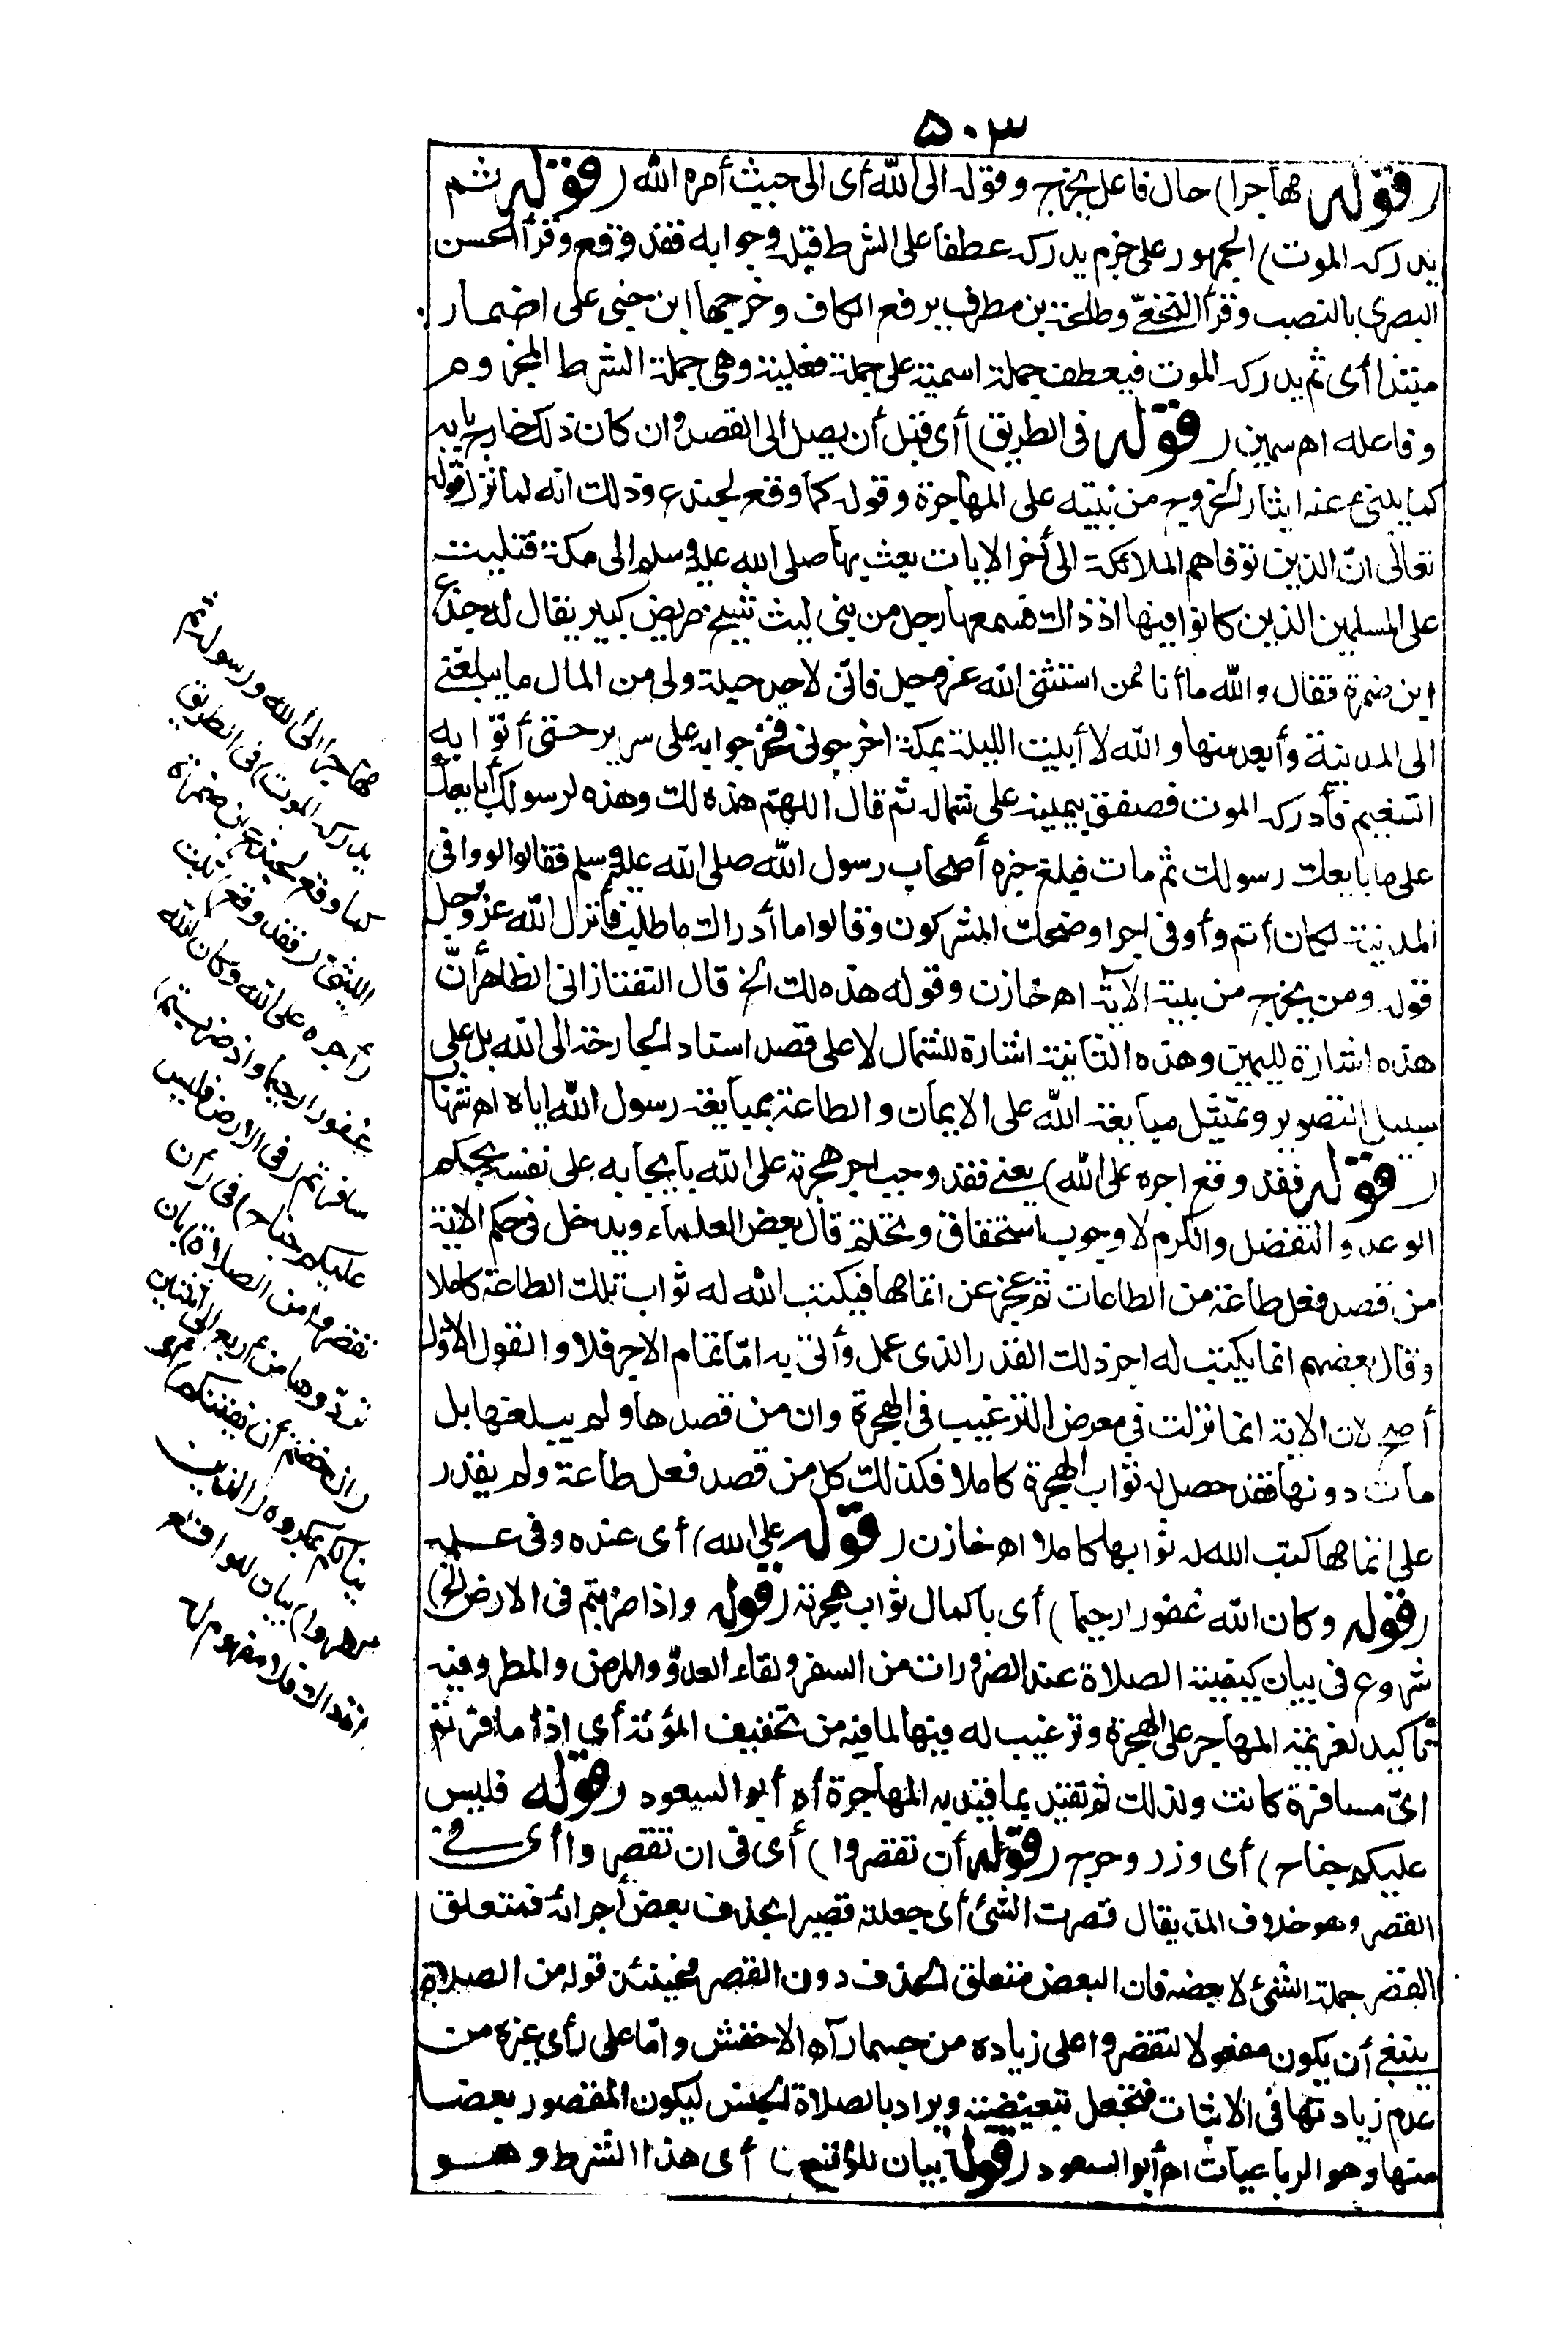 ٥٠٣
(قوله مهاجرا) حال فاعل يخرج وقوله الى الله أى الى حيث أمره الله (قوله ثم
يدركه الموت) الجمهور على جزم يدركه عطفا على الشرط قبله وجوابه فقد وقع وقرأ الحسن
البصرى بالنصب وقرأ النخعىّ وطلحة بن مطرف برفع الكاف وخرجها ابن جنى على اضمار
مبتدا أى ثم يدركه الموت فيعطف جملة اسمية على جملة فعلية وهى جملة الشرط المجزوم
وفاعله اه سمين (قوله فى الطريق) أى قبل أن يصل الى القصد وان كان ذلك خارج بابه
كما ينبئ عنه ايثار الخروج من بيته على المهاجرة وقوله كما وقع لجندع وذلك انه لما نزل قوله
تعالى انّ الذين توفاهم الملائكة الى أخر الايات بعث بها صلى الله عليه وسلم الى مكة فتليت
على المسلمين الذين كانوا فيها اذ ذاك فسمعها رجل من بنى ليث شيخ مريض كبير يقال له جندع
ابن ضمرة فقال والله ما أنا ممن استثنى الله عز وجل فانى لاجد حيلة ولى من المال ما يبلغنى
الى المدينة وأبعد منها والله لا أبيت الليلة بمكة اخرجونى فخرجوا به على سرير حتى أتوا به
التنعيم فأدركه الموت فصفق بيمينه على شماله ثم قال اللهمّ هذه لك وهذه لرسولك أبايعك
على ما بايعك رسولك ثم مات فبلغ خبره أصحاب رسول الله صلى الله عليه وسلم فقالوا لو وافى
المدينة لكان أتم وأوفى اجرا وضحك المشركون وقالوا ما أدرك ما طلب فأنزل الله عز وجل
قوله ومن يخرج من بيته الآية اه خازن وقوله هذه لك الخ قال التفتازانى الظاهر أنّ
هذه اشارة لليمين وهذه الثانية اشارة للشمال لا على قصد اسناد الجارحة الى الله بل على
سبيل التصوير وتمثيل مبايعة الله على الايمان والطاعة بمبايعة رسول الله اياه اه شهاب
(قوله فقد وقع اجره على الله) يعنى فقد وجب اجر هجرته على الله بايجابه على نفسه بحكم
الوعد والتفضل والكرم لا وجوب استحقاق وتحتم قال بعض العلماء ويدخل فى حكم الاية
من قصد فعل طاعة من الطاعات ثم عجز عن اتمامها فيكتب الله له ثواب تلك الطاعة كاملا
وقال بعضهم انما يكتب له اجر ذلك القدر الذى عمل وأتى به امّا تمام الاجر فلا والقول الاوّل
أصح لان الاية انما نزلت فى معرض الترغيب فى الهجرة وان من قصدها ولم يبلغها بل
مات دونها فقد حصل له ثواب الهجرة كاملا فكذلك كل من قصد فعل طاعة ولم يقدر
على اتمامها كتب الله له ثوابها كاملا اه خازن (قوله على الله) أى عنده وفى علمه
(قوله وكان الله غفورا رحيما) أى باكمال ثواب هجرته (قوله واذا ضربتم فى الارض الخ)
شروع فى بيان كيفية الصلاة عند الضرورات من السفر ولقاء العدوّ والمرض والمطر وفيه
تأكيد لعزيمة المهاجر على الهجرة وترغيب له فيها لما فيه من تخفيف المؤنة أى اذا سافرتم
اىّ مسافرة كانت ولذلك لم تقيد بما قيد به المهاجرة أه أبو السعود (قوله فليس
عليكم جناح) أى وزر وحرج (قوله أن تقصروا) أى فى ان تقصروا أى فى
القصر وهو خلاف المد يقال قصرت الشئ أى جعلته قصيرا بحذف بعض أجزائه فمتعلق
القصر جملة الشئ لا بعضه فان البعض متعلق الحذف دون القصر فحينئذ قوله من الصلاة
ينبغى أن يكون مفعولا لتقصروا على زيادة من حسبما رآه الاخفش وامّا على رأى غيره من
عدم زيادتها فى الاثبات فتجعل تبعيضية ويراد بالصلاة الجنس ليكون المقصور بعضا
منها وهو الرباعيات اه أبو السعود (قوله بيان للواقع) أى هذا الشرط وهو
مهاجرا الى الله ورسوله ثم
يدركه الموت) فى الطريق
كما وقع لجندع بن ضمرة
الليثى (فقد وقع) ثبت
(أجره على الله وكان الله
غفورا رحيما واذا ضربتم)
سافرتم (فى الارض فليس
عليكم جناح) فى (أن
تقصروا من الصلاة) بان
تردّوها من اربع الى اثنتين
(ان خفتم أن يفتنكم) أى
ينالكم بمكروه (الذين
كفروا) بيان للواقع
اذ ذاك فلا مفهوم له